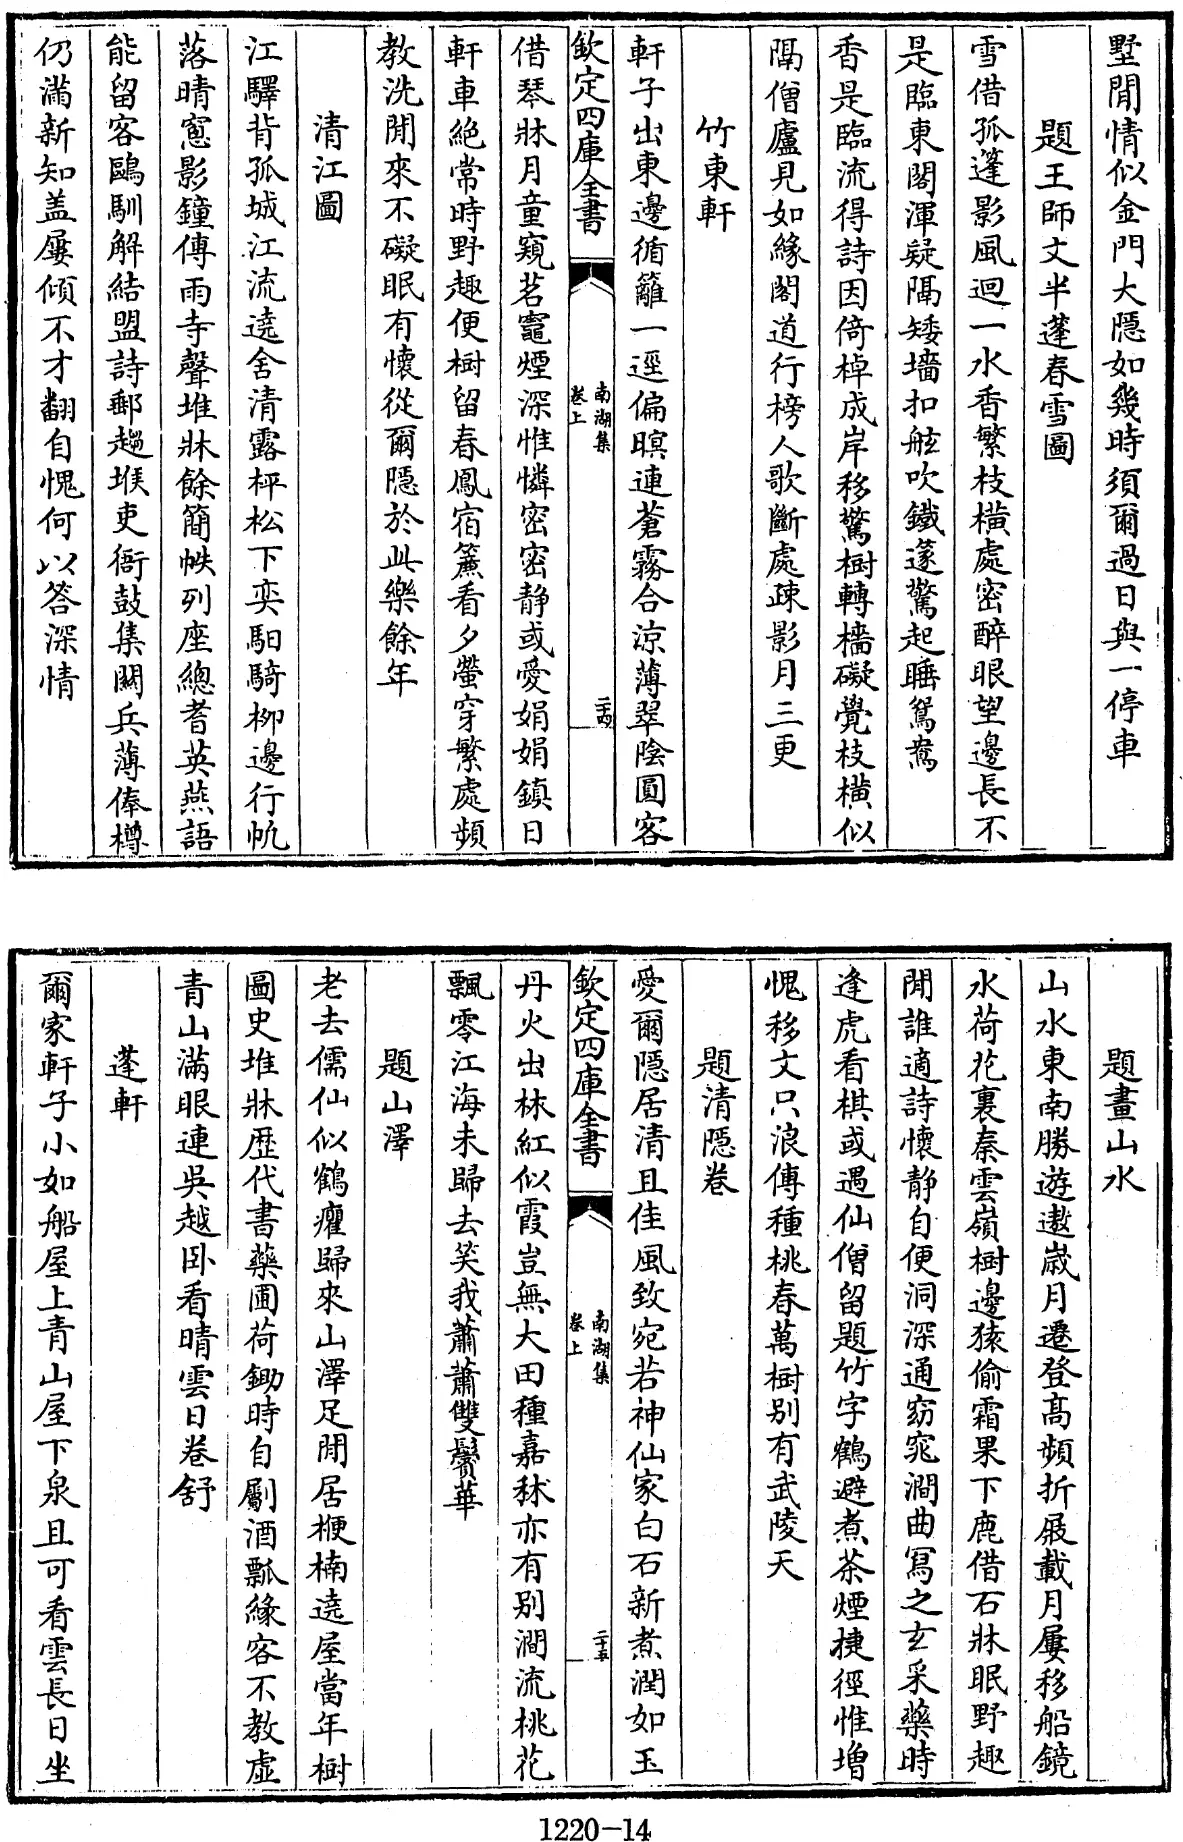 墅閒情似金門大隱如幾時須爾過日與一停車
題王師文半蓬春雪圖
雪借孤篷影風迴一水香繁枝橫處密醉眼望邊長不
是臨東閣渾疑隔矮墻扣舷吹鐵篴驚起睡鴛鴦
香是臨流得詩因倚棹成岸移驚樹轉檣礙覺枝橫似
隔僧廬見如緣閣道行榜人歌斷處疎影月三更
竹東軒
軒子出東邊循籬一逕偏暝連蒼霧合涼薄翠陰圓客
欽定四庫全書
南湖集
卷上
二十四
借琴牀月童窺茗竈煙深惟憐密密静或愛娟娟鎮日
軒車絶常時野趣便樹留春鳳宿簾看夕螢穿繁處頻
教洗閒來不礙眠有懷從爾隱於此樂餘年
清江圖
江驛背孤城江流遶舍清露枰松下奕馹騎柳邊行帆
落晴窻影鐘傳雨寺聲堆牀餘簡帙列座總耆英燕語
能留客鷗馴解結盟詩郵趨堠吏衙鼓集闗兵薄俸樽
仍滿新知盖屢傾不才翻自愧何以答深情
題畫山水
山水東南勝遊遨嵗月遷登髙頻折屐載月屢移船鏡
水荷花裏秦雲嶺樹邊猿偷霜果下鹿借石牀眠野趣
閒誰適詩懷静自便洞深通窈窕澗曲寫之玄采藥時
逢虎看棋或遇仙僧留題竹字鶴避煮茶煙捷徑惟增
愧移文只浪傳種桃春萬樹别有武陵天
題清隱卷
愛爾隱居清且佳風致宛若神仙家白石新煮潤如玉
欽定四庫全書
南湖集
卷上
二十五
丹火出林紅似霞豈無大田種嘉秫亦有别澗流桃花
飄零江海未歸去笑我蕭蕭雙鬢華
題山澤
老去儒仙似鶴癯歸來山澤足閒居楩楠遶屋當年樹
圖史堆牀歴代書藥圃荷鋤時自劚酒瓢緣客不教虛
青山滿眼連吳越卧看晴雲日卷舒
蓬軒
爾家軒子小如船屋上青山屋下泉且可看雲長日坐
1220-14